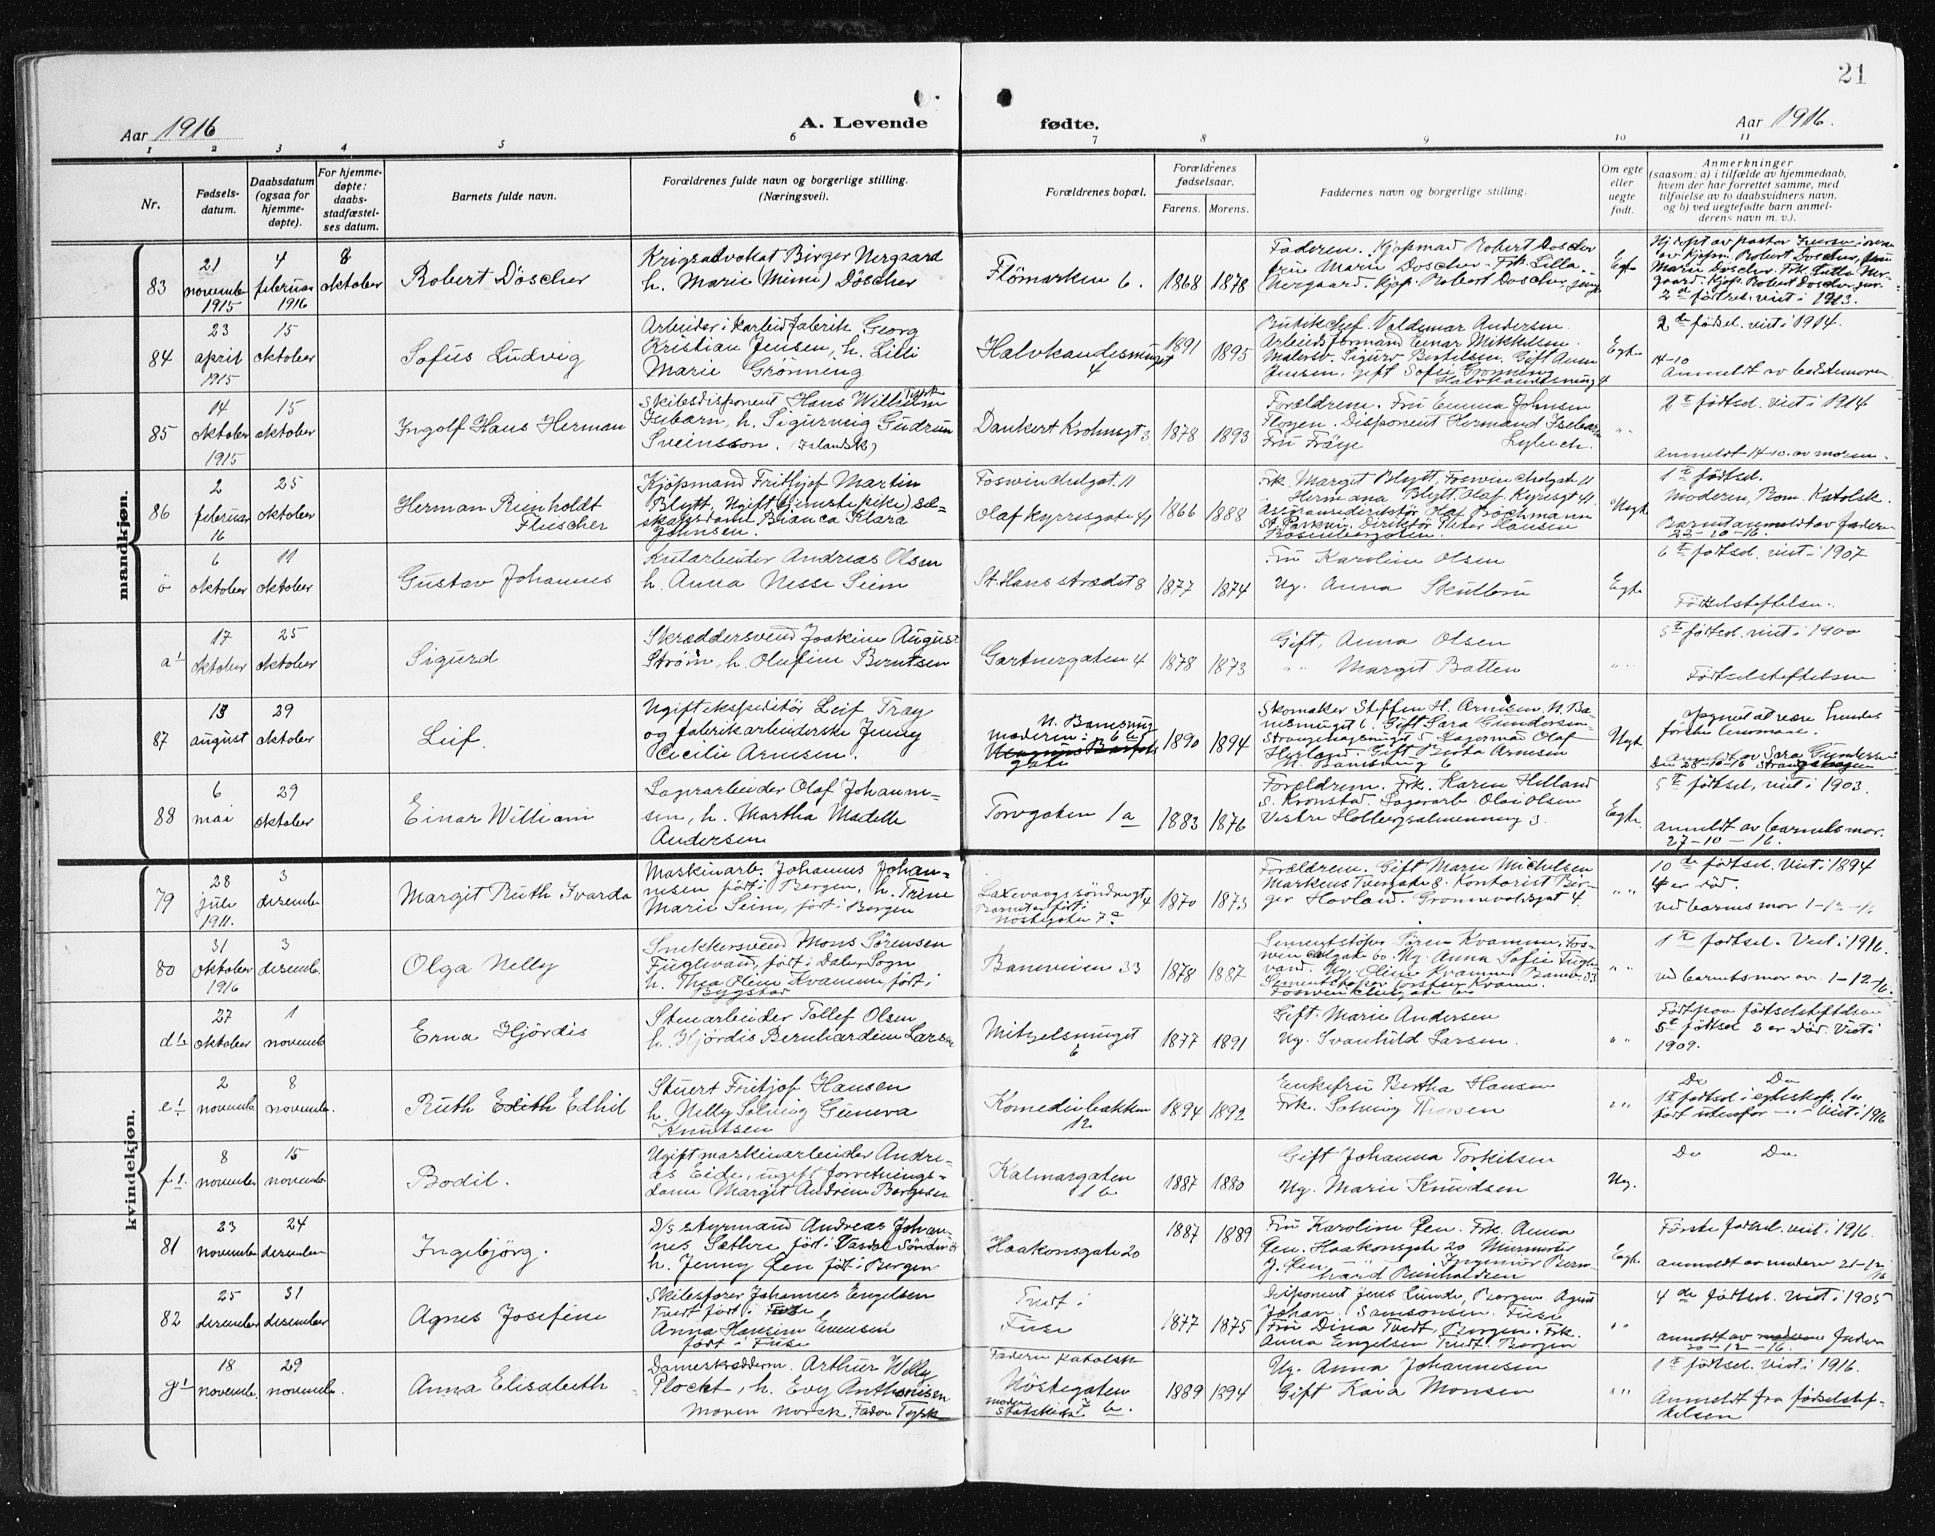 21
Aar 1916
A. Levende
fødte.
Aar 1916.
1 2 3 4 5 6 7 8 9 10 11
Nr.
Fødsels-
datum.
Daabsdatum
(ogsaa for
hjemme-
døpte).
For hjemme-
døpte:
daabs-
stadfæstel-
ses datum.
Barnets fulde navn.
Forældrenes fulde navn og borgerlige stilling.
(Næringsvei).
Forældrenes bopæl.
Forældrenes
fødselsaar.
Farens. Morens.
Faddernes navn og borgerlige stilling.
Om egte
eller
uegte
født.
Anmerkninger
(saasom: a) i tilfælde av hjemmedaab,
hvem der har forrettet samme, med
tilføielse av to daabsvidners navn,
og b) ved uegtefødte barn anmel-
derens navn m. v.).
mandkjøn.
83
21
november
1915
4
februar
1916
8
oktober
Robert Döscher
Krigsadvokat Birger Nergaard
h. Marie (Mimi) Döscher
Flömarken 6.
1868 1878
Faderen. Kjøpmad Robert Doscher
fru Marie Doscher. Frk Lilla
Nergaard. Kjøp. Robert Doscher jung
Egte
2de fødsel. vist i 1913.
84
23
april
1915
15
oktober
Sofus Ludvig
Arbeider i karbidfabrik Georg
Kristian Jensen, h. Lilli
Marie Grönning
Halvkandesmuget
4
1891 1895
Butikchef Valdemar Andersen
Arbeidsformand Einar Mikkelsen
Malersv. Sigurd Bertelsen. Gift Anna
Jensen, gift Sofie Gronning
Halvkandesmug 4
Egte
2de fødsel. vist i 1914.
14-10
Anmeldt av bedstemoren
85
14
oktober
1915
15
oktober
Ingolf Hans Herman
Skibsdisponent Hans Wilhelm
Tysk
Isebarn, h. Sigurveig Gudrun
Sveinsson. (Islandsk)
Dankert Krohnsgt 3
1878 1893
Forældrene. Fru Emma Johnsen
Floyen. Disponent Hermand Isebarn
Fru Fröye
" "
2de fødsel. vist i 1914
Anmeldt 14-10. av moren.
86
2
februar
16
25
oktober
Herman Reinholdt
Fleischer
Kjöpmand Fritjof Martin
Blytt. Ugift (tjenestepike) sel-
skapsdame Bianca Klara
Johnsen.
Foswinckelgat. 11
Olaf Kyrresgate 41
1866 1888
Frk. Margit Blytt, Foswinckelsgt 11
Hermana Blytt Olaf Kyrresgt 41
Rosenbergsten.
Uegt
1te fødsel.
Moderen, Rom. Katolik.
Barnet anmeldt av faderen
23-10-16.
ö
6
oktober
11
oktober
Gustav Johannes
Andreas Olsen
h. Anna Nesse Seim
St. Hans strædet 8
1877 1874
Fru Karoline Olsen
Ug. Anna Skulberu
Egte
6te fødsel. vist i 1907
Födselstiftelsen.
a¹
17
oktober
25
oktober
Sigurd
Skræddersvend Joakim August
Ström, h. Olufine Berntsen
Gartnergaten 4
1878 1873
Gift, Anna Olsen
" Margit Batten
" "
5te fødsel. vist i 1900
Födselstiftelsen
87
13
august
29
oktober
Leif.
Ugift ekspeditör Leif Tray
og fabrikarbeiderske Jenny
Cecilie Arnesen.
N. Bamesmug
moderen: 6 b
Magnus Barfots
gate
1890 1894
Skomaker Steffen H. Arnesen, N. Ba-
mesmuget 6. Gift Sara Gundersen
Strangehagesmuget 5 Lagermad Olaf
Herland. Gift Berta Arnesen
N. Bamesmug 6
Uegt.
opgivet at være hendes
første levende.
Anmeldt av Sara Gundersen
den 28-10-16 Strangehagen
88
6
mai
29
oktober
Einar William
Lagerarbeider Olaf Johann-
sen, h. Martha Madelle
Andersen
Torvgaten 1a
1883 1876
Forældrene. Frk. Karen Helland
S. Kronstad. Lagerarb. Olai Olsen
Vestre Holbergsalmenning 3.
Egte.
5te fødsel, vist i 1903.
anmeldt av barnets mor.
27-10-16.
kvindekjøn.
79
28
juli
1911.
3
desember
Margit Ruth Svarda
Maskinarb. Johannes Johan-
nesen født i Bergen, h. Trine
Marie Seim, født i Bergen
Laxevaag, söndregt 4
Barnet er født i
Nöstegaten 7a
1870 1873
Forældrene. Gift Marie Michelsen
Markens Tværgate 8. Kontorist Bir-
ger Hovland. Gronnevoldsgat 4.
" "
10de fødsel. Vist i 1894
4 er död.
ved barnets mor 1-12-16
80
31
oktober
1916
3
desemb.
Olga Nelly
Snekkersvend Mons Sörensen
Fuglevand, født i Dale, Sogn
h. Thea Oline Kvamme født i
Bygstad
Baneveien 33
1878 1887
Sementstöper Sören Kvamme, Fos-
winckelgate 60. Ug. Anna Sofie Fugle-
vand. Ug. Oline Kvamme Banev. 33
Sementstöper Torsten Kvamme.
Foswinckelsgate 60
" "
1te fødsel. Vist i 1916.
ved barnets mor av. 1-12-16.
d¹
27
oktober
1
novemb
Erna Hjördis
Stenarbeider Tollef Olsen
h. Hjördis Bernhardine Larsen
Mitzelsmuget
6
1877 1891
Gift. Marie Andersen
Ug. Svanhild Larsen.
" "
Født paa födselsstiftelsen
5te fødsel 2 er död. Vist i
1909.
e¹
2
novemb.
8
novemb.
Ruth Edith Edhil
Stuert Fritjof Hansen
h. Nelly Solveig Guneva
Knutsen
Komediebakken
12
1894 1892
Enkefru Bertha Hansen
Frk. Solveig Thorsen
" "
Do Do
1te fødsel i egteskap. 1 er
født utenfor — Vist i 1916
f¹.
8
november
15
novemb.
Bodil.
Ugift maskinarbeider Andre-
as Eide, ugift forretnings-
dame Margit Andrine Borgesen
Kalmargaten
1 b
1887 1880
Gift Johanna Torkilsen
Ug. Marie Knudsen
Ug.
Do Do
81
23
november
24
desember
Ingebjörg.
D/s styrmand Andreas Johan-
nes Sætre født i Vasdal Söndmör
h. Jenny Øen født i Bergen
Haakonsgate 20
1887 1889
Fru Karoline Øen. Frk. Anna
Øen. Haakonsgate 20 Murmester
J. Øen — " — Ingeniör Bern-
hard Reinholdsen
Egte
Förste fødsel. vist i 1916.
anmeldt av moderen 21-12-
16
82
25
desember
31
desember
Agnes Josefine
Skibsfører Johannes Engelsen
Tvedt født i Fuse
Anna Hansine Evensen
født i Fuse
Tvedt i
Fuse
1877 1875
Disponent Jens Lunde, Bergen. Agent
Johan Samsonsen. Fuse
Fru Dina Tvedt, Bergen. Frk.
Anna Engelsen Tvedt. Bergen
" "
4de fødsel. Vist i 1905
anmeldt av moderen faderen
30-12-16.
g¹
18
novemb.
29
november.
Anna Elisabeth
Dameskrædderm. Arthur Willy
Plockt, h. Evy Anthonisen
Moren norsk. Fader Tysk
Faderen Katolsk
Nöstegaten
7 b.
moder
Statskirke
1889 1894
Ug. Anna Johannesen
Gift Kaia Monsen
" "
1te fødsel. Vist i 1916.
Anmeldt fra fødselstif-
telsen